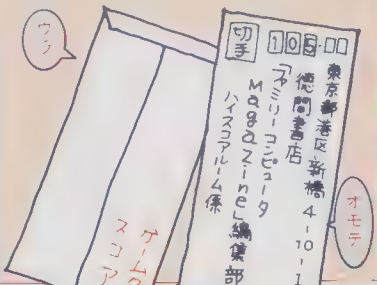 切手
105
東京都港区新橋4-10-1
徳間書店
「ファミリーコンピュータ
Magazine」編集部
ハイスコアルーム係
オモテ
ウラ
ゲーム
スコア